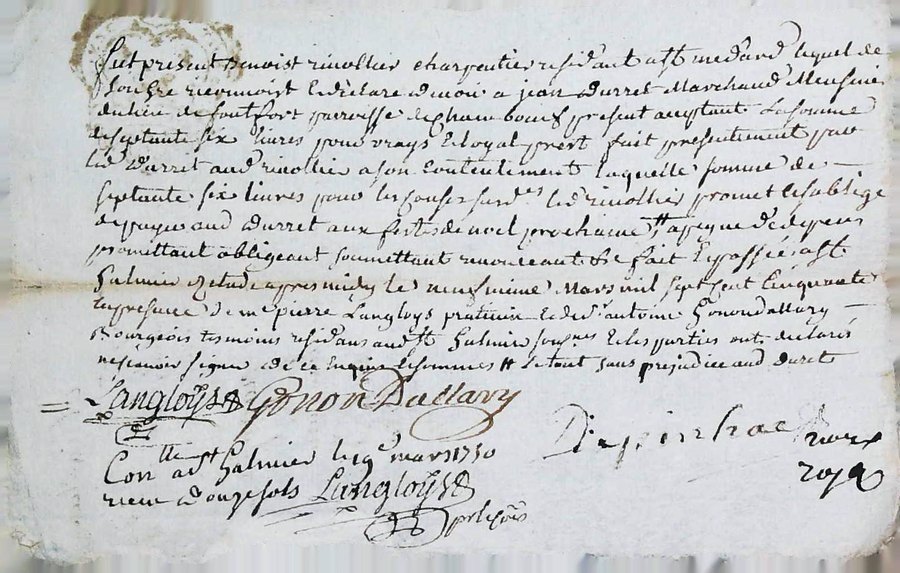 fut present Benoist rivollier charpentier residant a st medard lequel de
son gre reconnoist et declare devoir a jean durret Marchand Meusnier
du lieu de fontfort parroisse de chambœuf present acceptant La somme
de septante six livres pour vray et Loyal prest fait presentement par
led durret aud rivollier a son contentement laquelle somme de
septante six livres pour les causes susd led rivollier promet et soblige
de payer aud durret aux festes de noel prochaine a peyne de depens
promettant obligeant soumettant renonceant &c fait et passé a st
Galmier etude apres midy le neufvieme Mars mil sept cent Cinquante
en presence de me pierre Langloys praticien et de sr antoine Gonon dallary
Bourgeois tesmoins residans aud st Galmier sousnes et les parties ont declarés
ne scavoir signer de ce enquis et sommes # le tout sans prejudice aud duret
Langloys Gonon Dallary
Conlle a st Galmier le 19e mars 1750
receu douze sols Langloys
notre
royal